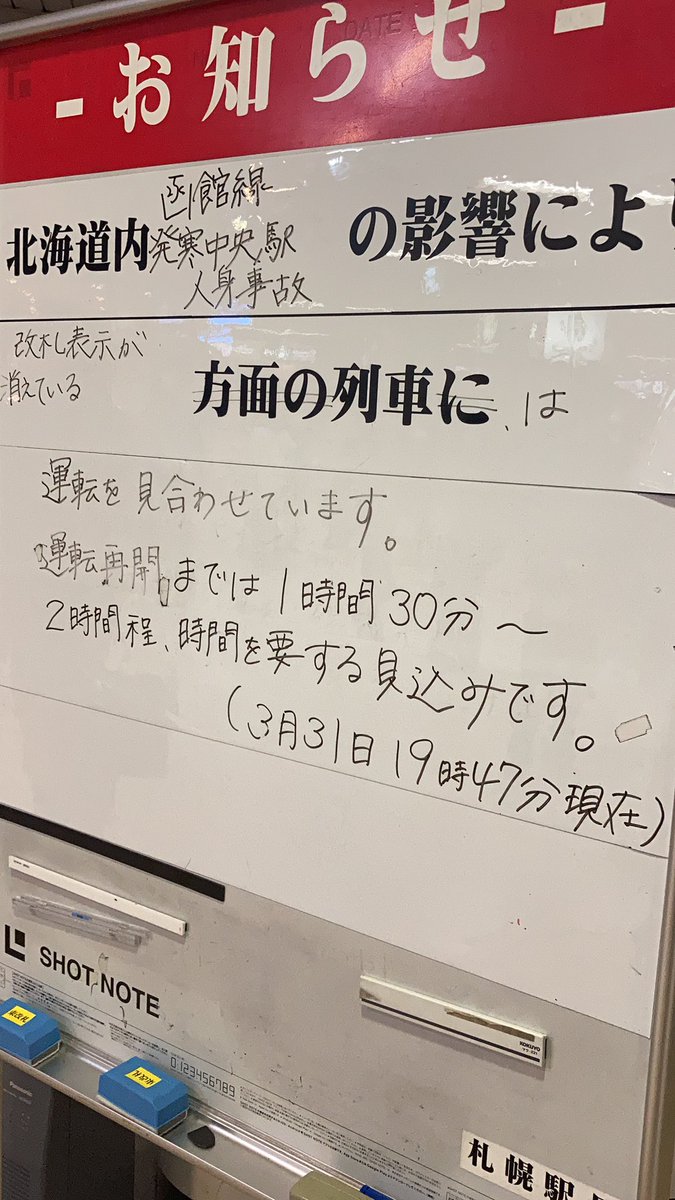 DATE
-お知らせ-
函館線
北海道内発寒中央駅の影響により
人身事故
改札表示が
消えている
方面の列車に、は
運転を見合わせています。
運転再開までは1時間30分〜
2時間程、時間を要する見込みです。
(3月31日19時47分現在)
SHOT NOTE
KOKUYO
0123456789
札幌駅